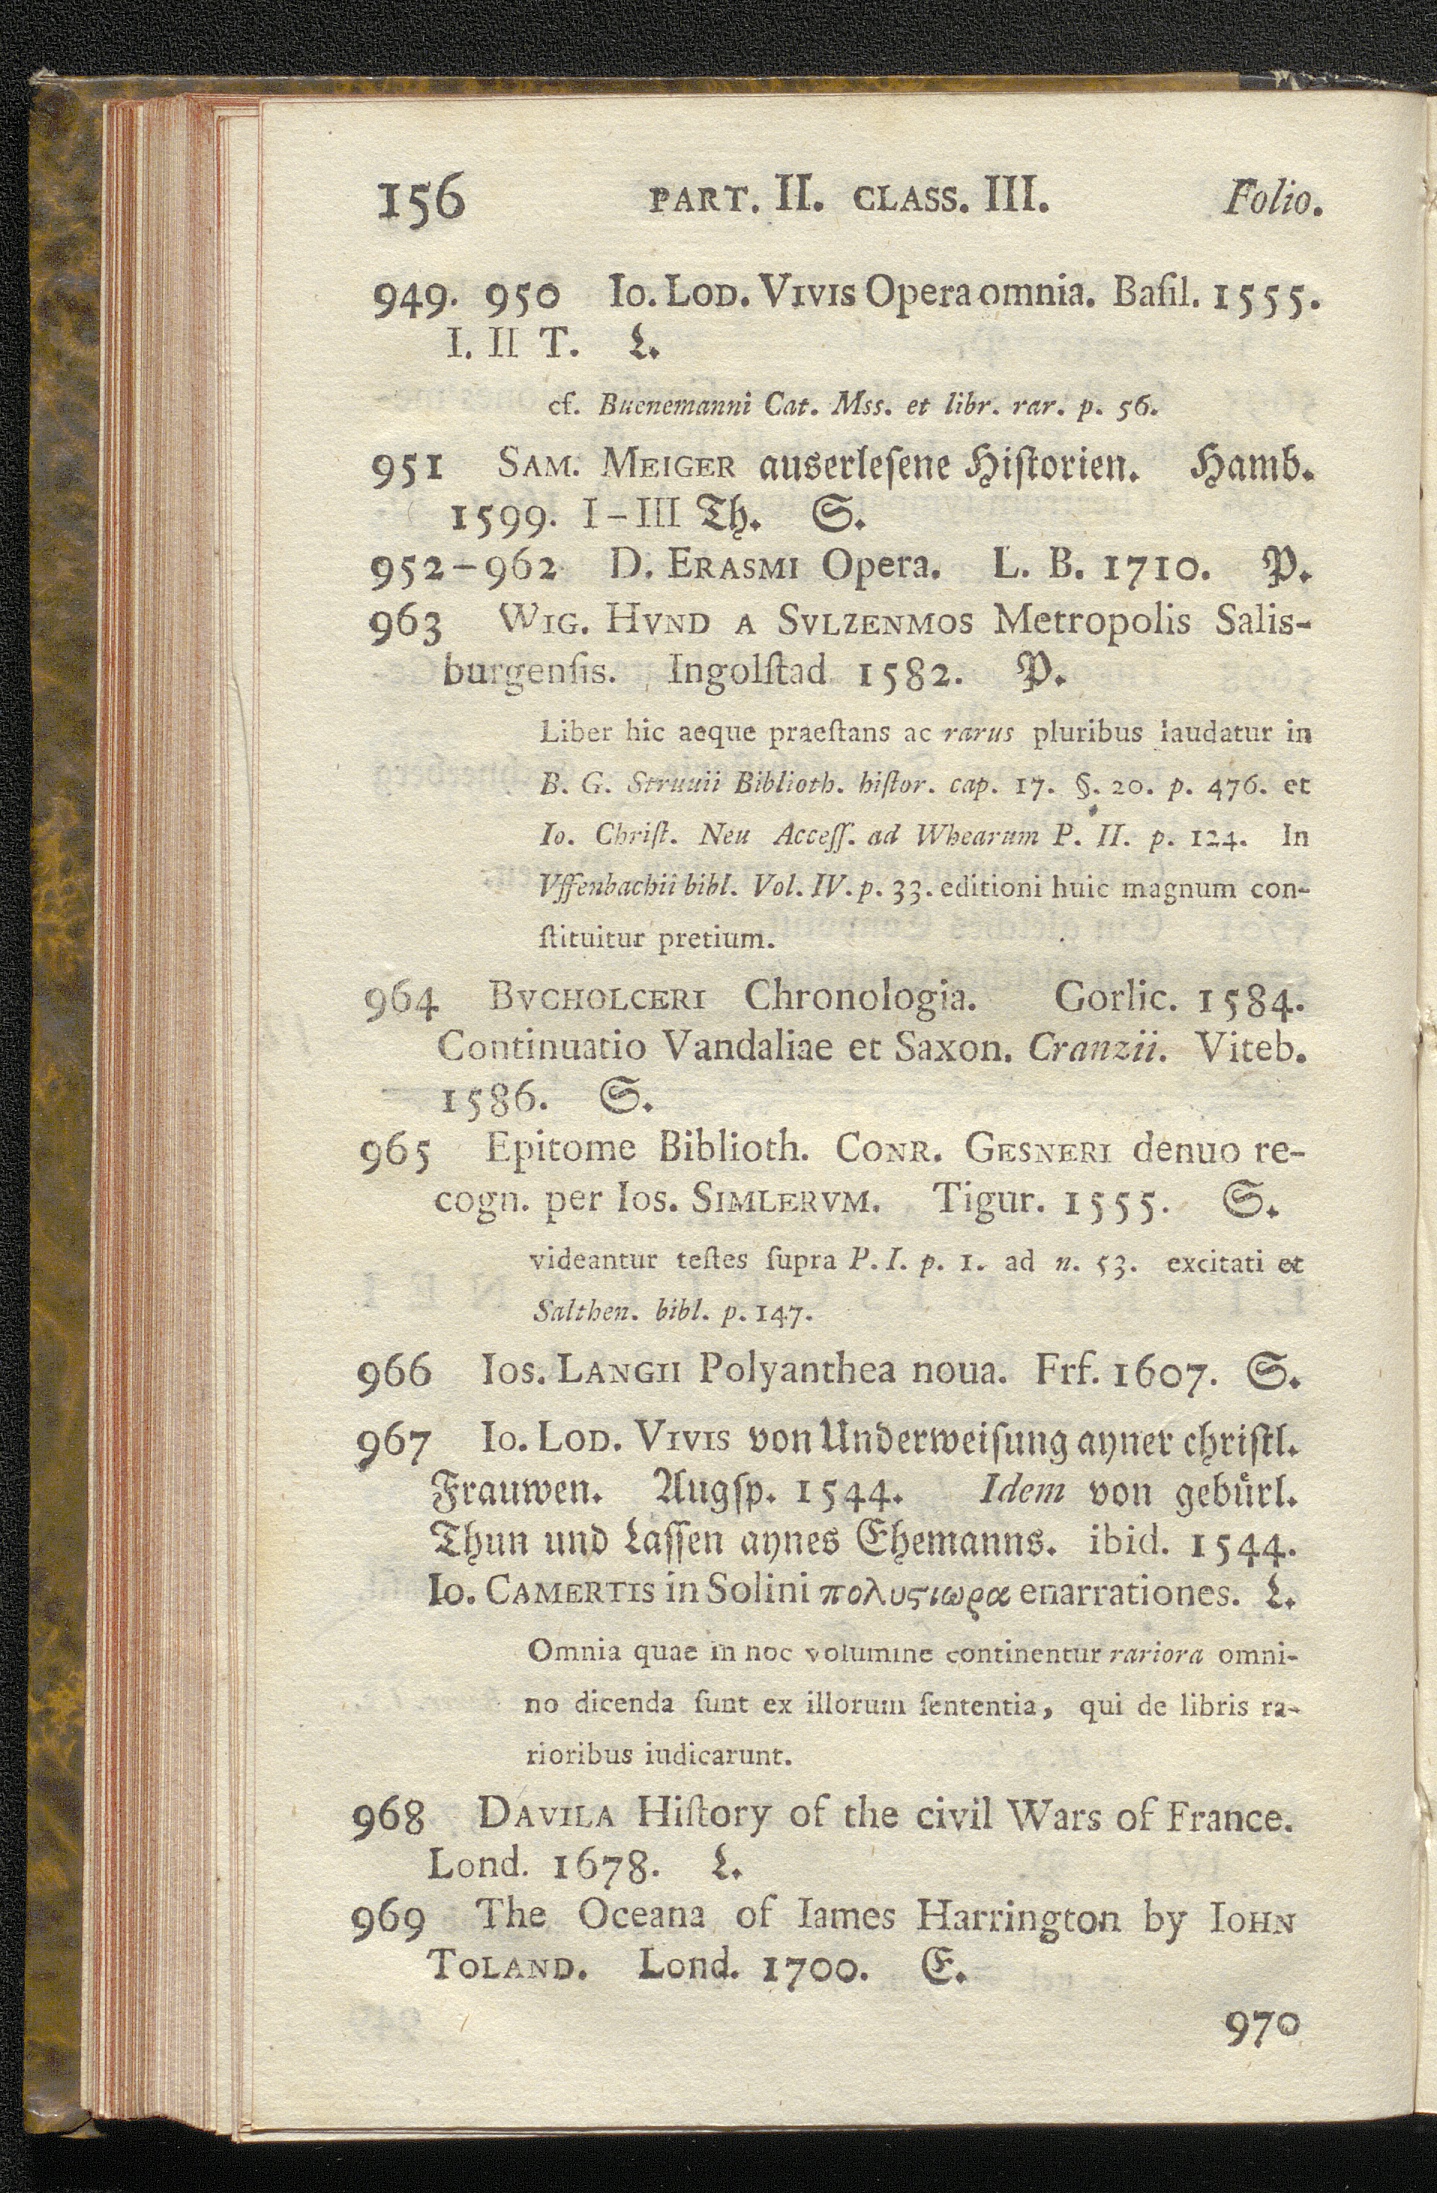 156 PART. II. CLASS. III. Folio.
949. 950 Io. Lod. Vivis Opera omnia. Baſil. 1555.
I. II T. L.
cf. Buenemanni Cat. Mss. et libr. rar. p. 56.
951 Sam. Meiger auserleſene Hiſtorien. Hamb.
1599. I-III Th. S.
952-962 D. Erasmi Opera. L. B. 1710. P.
963 Wig. Hvnd a Svlzenmos Metropolis Salis-
burgenſis. Ingolſtad 1582. P.
Liber hic aeque praeſtans ac rarus pluribus laudatur in
B. G. Struuii Biblioth. hiſtor. cap. 17. §. 20. p. 476. et
Io. Chriſt. Neu Acceſſ. ad Whearum P. II. p. 124. In
Vffenbachii bibl. Vol. IV. p. 33. editioni huic magnum con-
ſtituitur pretium.
964 Bvcholceri Chronologia. Gorlic. 1584.
Continuatio Vandaliae et Saxon. Cranzii. Viteb.
1586. S.
965 Epitome Biblioth. Conr. Gesneri denuo re-
cogn. per Ios. Simlervm. Tigur. 1555. S.
videantur teſtes ſupra P. I. p. 1. ad n. 53. excitati et
Salthen. bibl. p. 147.
966 Ios. Langii Polyanthea noua. Frf. 1607. S.
967 Io. Lod. Vivis von Underweiſung ayner chriſtl.
Frauwen. Augſp. 1544. Idem von gebuͤrl.
Thun und Laſſen aynes Ehemanns. ibid. 1544.
Io. Camertis in Solini πολυϛιωρα enarrationes. L.
Omnia quae in hoc volumine continentur rariora omni-
no dicenda ſunt ex illorum ſententia, qui de libris ra-
rioribus iudicarunt.
968 Davila Hiſtory of the civil Wars of France.
Lond. 1678. L.
969 The Oceana of Iames Harrington by Iohn
Toland. Lond. 1700. E.
970